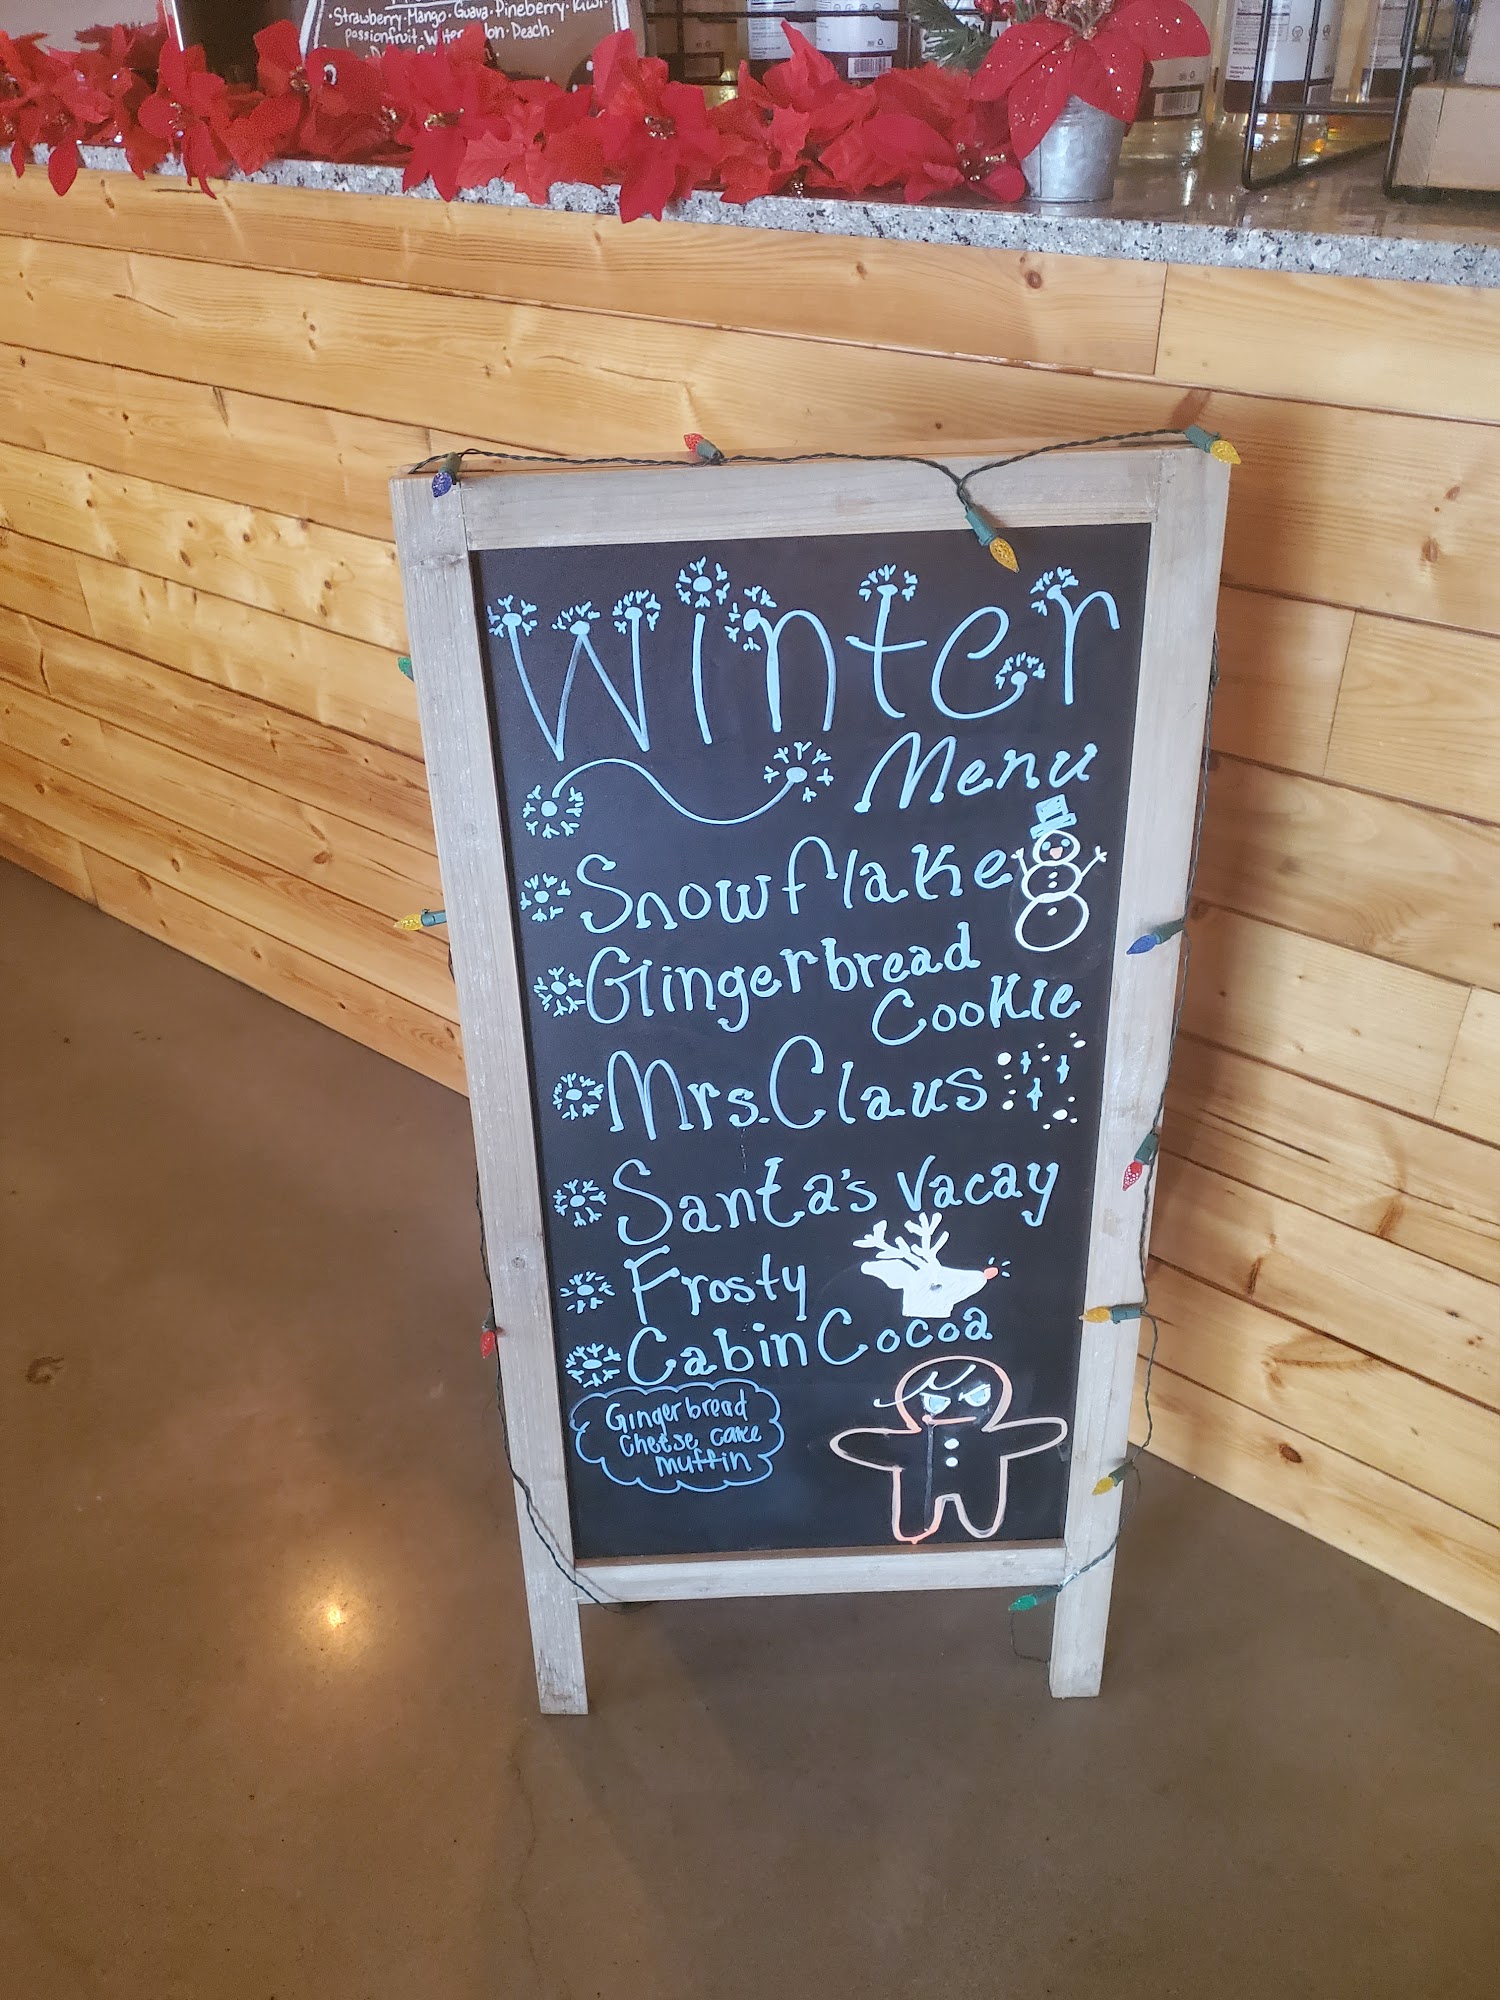 ·Strawberry·Mango·Guava·Pineberry·Kiwi·
passionfruit·Watermelon·Peach·
Winter
Menu
Snowflake
Gingerbread
Cookie
Mrs. Claus
Santa's Vacay
Frosty
Cabin Cocoa
Gingerbread
cheese cake
muffin